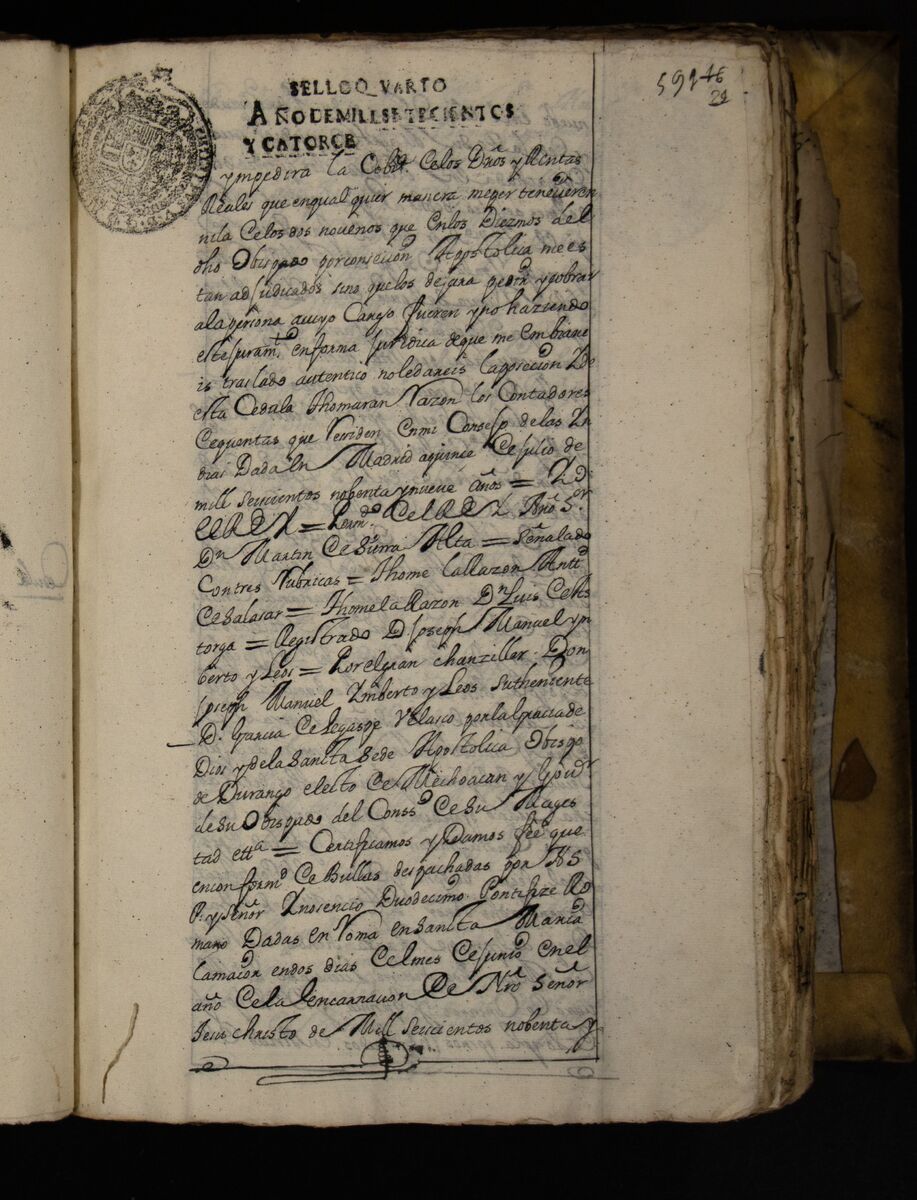 59146
29
SELLO QVARTO
AÑO DE MILL SETECIENTOS
Y CATORCE
y mpedira la Cobr.ª Celos Dr̃os y Rentas
Reales que enqual quier manera meper teneçieren
nila Celos dos novenos que Enlos Diezmos del
dho Obispado por consecion Apostolica mees
tan adjudicados sino quelos dejara pedir y cobrar
ala persona acuyo Cargo fueren y no haziendo
este juram.to en forma juridica deque me Embiare
is traslado autentico noledareis laposecion Y de
esta Cedula Thomaran Razon los Contadores
Cequentas que Residen Enmi Consejo delas Yn
dias Dada En Madrid aquince Cejulio de
mill seiscientos nobenta y nueve años = Yo
El REY = Por m.do Cel REY Nro S.or
Dn Martin Ce Sierra Alta = Señalado
Contres Rubricas = Thome la Razon Antt.o
Ce Salasar = Thome la Razon Dn Luis Ce As
torga = Registrado D Joseph Manuel yn
berto y Leos = Por el gran chanziller Don
Joseph Manuel Ymberto y Leos sutheniente
D. Garcia Celegaspe Velasco por la Gracia de
Dios y de la Sancta Sede Apostolica Obispo
de Durango electo Ce Mechoacan y Gov.or
de su Obispado del Cons.o Ce Su Mages
tad ett.a = Certificamos y Damos fee que
enconform.d Ce Bullas despachadas por N S
P. y Señor Ynosencio Duodecimo Pontifize Ro
mano Dadas en Roma en Sancta Maria
Lamaior endos dias Celmes Cejunio enel
año Cela encarnacion Ce Nro Señor
Jesu christo de Mill seiscientos nobenta y